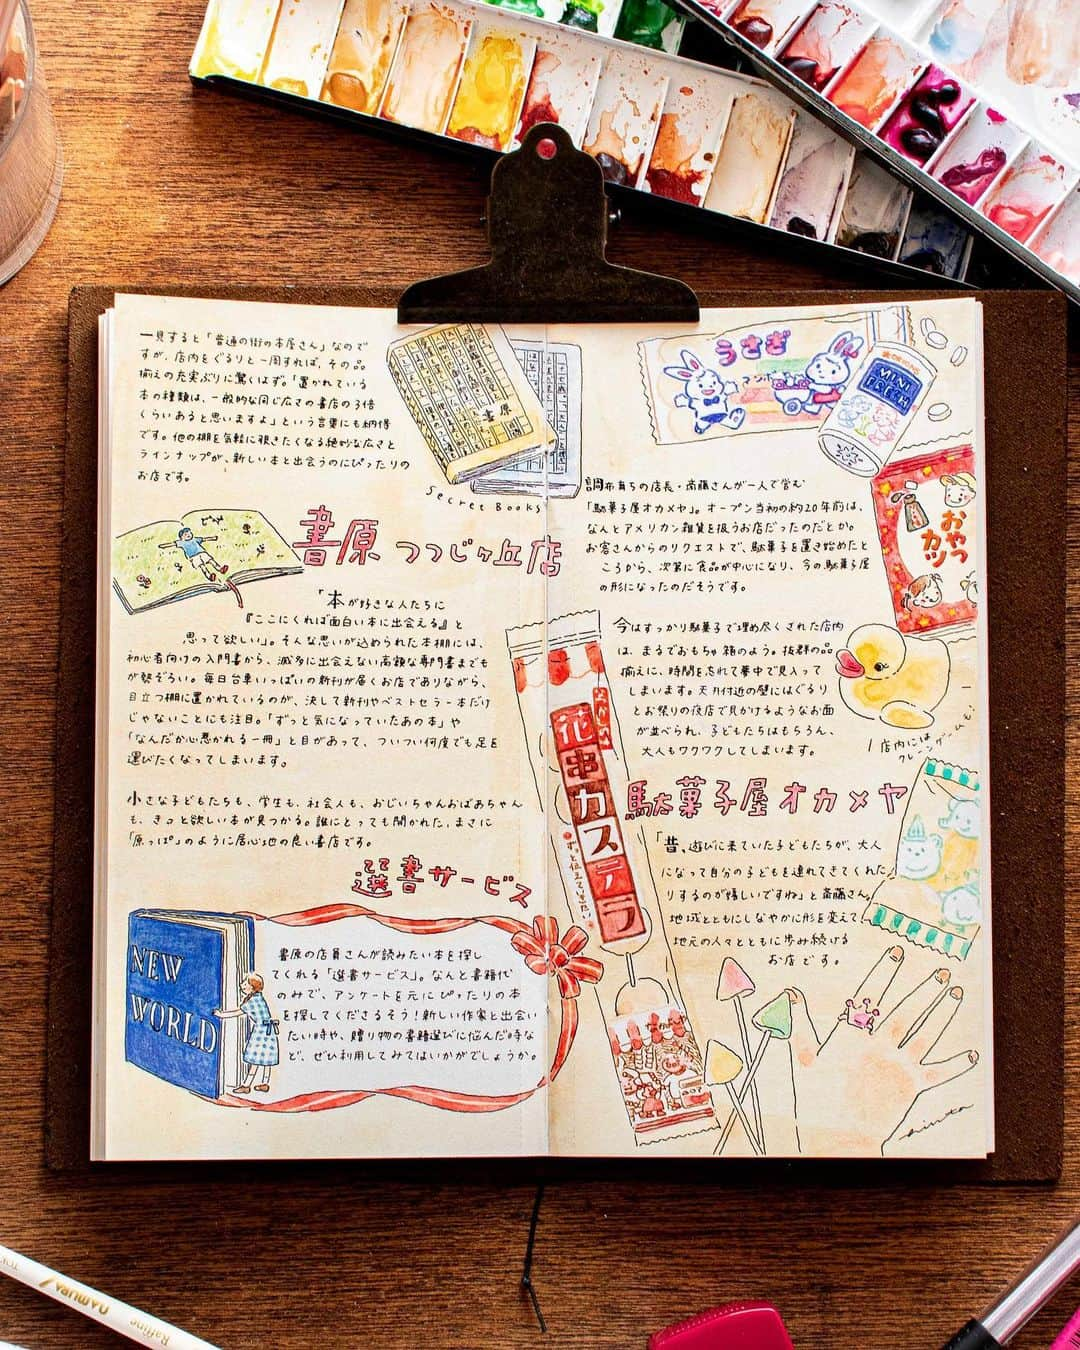 一見すると「普通の街の本屋さん」なので
すが、店内をぐるりと一周すれば、その品
揃えの充実ぶりに驚くはず。「置かれている
本の種類は、一般的な同じ広さの書店の3倍
くらいあると思いますよ」という言葉にも納得
です。他の棚を気軽に覗きたくなる絶妙な広さと
ラインナップが、新しい本と出会うのにぴったりの
お店です。
書原
Secret Books
書原 つつじヶ丘店
「本が好きな人たちに
『ここにくれば面白い本に出会える』と
思って欲しい」。そんな思いが込められた本棚には、
初心者向けの入門書から、滅多に出会えない高額な専門書までも
が勢ぞろい。毎日台車いっぱいの新刊が届くお店でありながら、
目立つ棚に置かれているのが、決して新刊やベストセラー本だけ
じゃないことにも注目。「ずっと気になっていたあの本」や
「なんだか心惹かれる一冊」と目があって、ついつい何度でも足を
運びたくなってしまいます。
小さな子どもたちも、学生も、社会人も、おじいちゃんおばあちゃん
も、きっと欲しい本が見つかる。誰にとっても開かれた、まさに
「原っぱ」のように居心地の良い書店です。
選書サービス
NEW
WORLD
書原の店員さんが読みたい本を探し
てくれる「選書サービス」。なんと書籍代
のみで、アンケートを元にぴったりの本
を探してくださるそう!新しい作家と出会い
たい時や、贈り物の書籍選びに悩んだ時な
ど、ぜひ利用してみてはいかがでしょうか。
うさぎ
MINI
FRESH
おやつ
カツ
調布育ちの店長・斎藤さんが一人で営む
「駄菓子屋オカメヤ」。オープン当初の約20年前は、
なんとアメリカン雑貨を扱うお店だったのだとか。
お客さんからのリクエストで、駄菓子を置き始めたと
ころから、次第に食品が中心になり、今の駄菓子屋
の形になったのだそうです。
今はすっかり駄菓子で埋め尽くされた店内
は、まるでおもちゃ箱のよう。抜群の品
揃えに、時間を忘れて夢中で見入って
しまいます。天井付近の壁にはぐるり
とお祭りの夜店で見かけるようなお面
が並べられ、子どもたちはもちろん、
大人もワクワクしてしまいます。
店内には
クレーンゲームも!
花串カステラ
ずっと伝えていきたい
駄菓子屋オカメヤ
「昔、遊びに来ていた子どもたちが、大人
になって自分の子どもを連れてきてくれた
りするのが嬉しいですね」と斎藤さん。
地域とともにしなやかに形を変えて、
地元の人々とともに歩み続ける
お店です。
NAMURA
Raffine